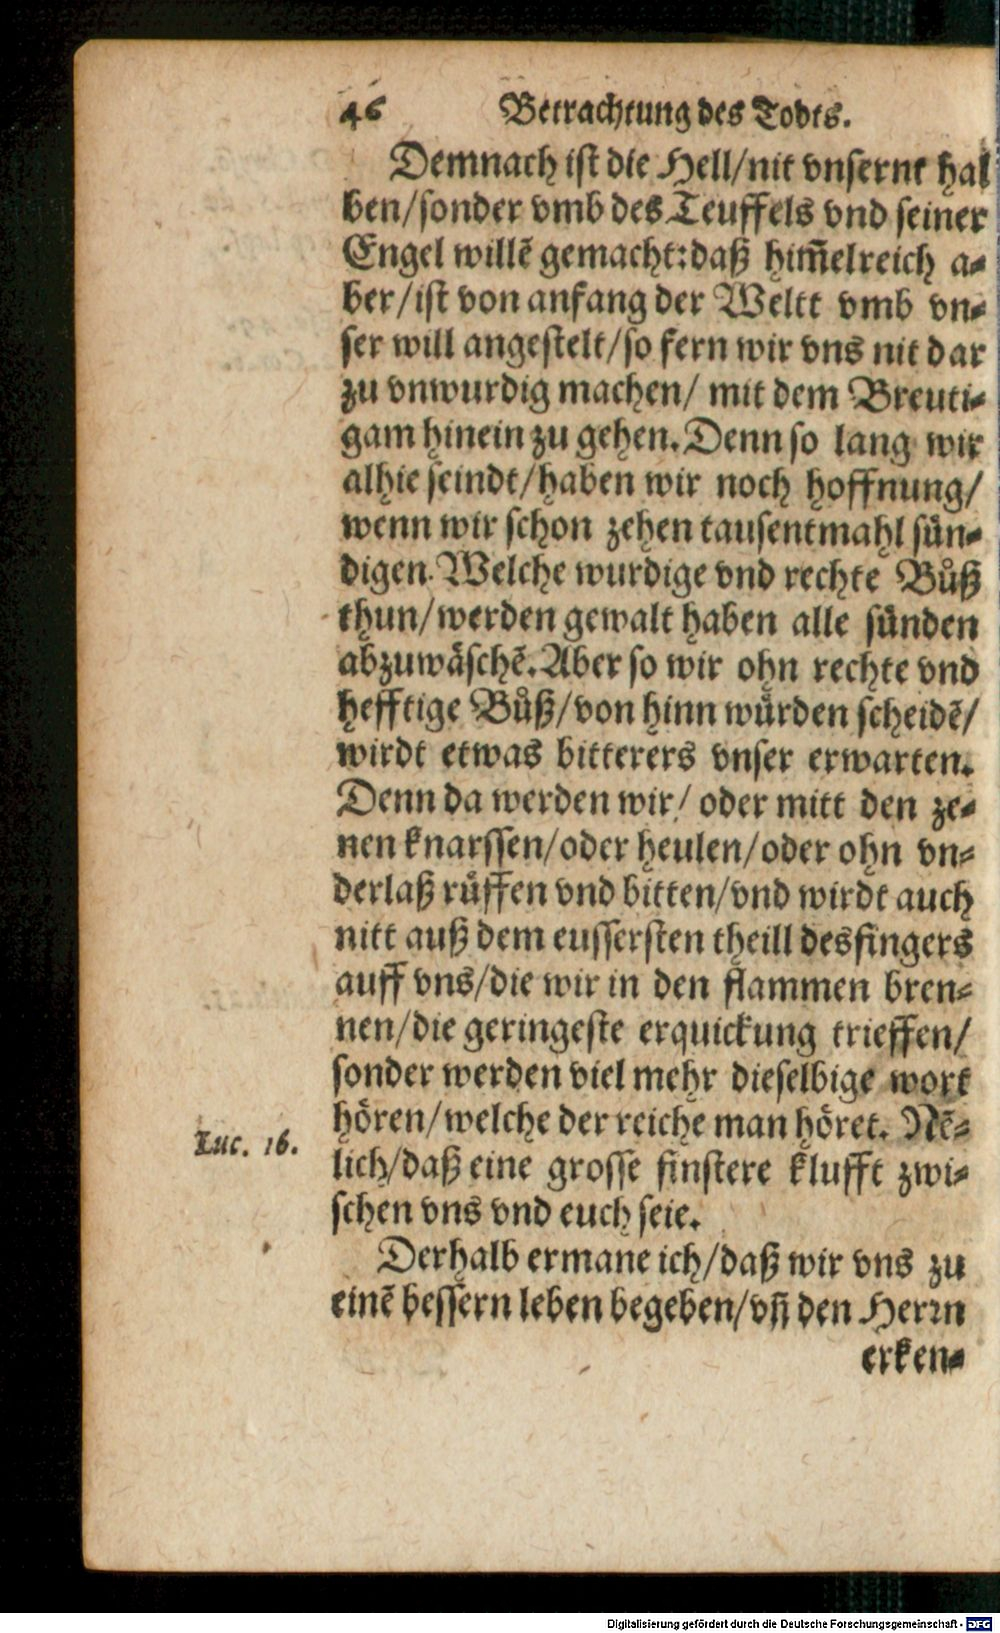 46 Betrachtung des Todts.
Demnach ist die Hell/nit vnsernt hal
ben/sonder vmb des Teuffels vnd seiner
Engel willē gemacht:daß him̄elreich a-
ber/ist von anfang der Weltt vmb vn-
ser will angestelt/so fern wir vns nit dar
zu vnwurdig machen/ mit dem Breuti-
gam hinein zu gehen. Denn so lang wir
alhie seindt/haben wir noch hoffnung/
wenn wir schon zehen tausentmahl sün-
digen. Welche wurdige vnd rechte Bůß
thun/werden gewalt haben alle sünden
abzuwäschē. Aber so wir ohn rechte vnd
hefftige Bůß/von hinn würden scheidē/
wirdt etwas bitterers vnser erwarten.
Denn da werden wir/ oder mitt den ze-
nen knarssen/oder heulen/oder ohn vn-
derlaß rüffen vnd bitten/vnd wirdt auch
nitt auß dem eussersten theill des fingers
auff vns/die wir in den flammen bren-
nen/die geringeste erquickung trieffen/
sonder werden viel mehr dieselbige wort
hören/welche der reiche man höret. Nē-
Luc. 16.
lich/daß eine grosse finstere klufft zwi-
schen vns vnd euch seie.
Derhalb ermane ich/daß wir vns zu
einē bessern leben begeben/vñ den Herrn
erken-
Digitalisierung gefördert durch die Deutsche Forschungsgemeinschaft - DFG